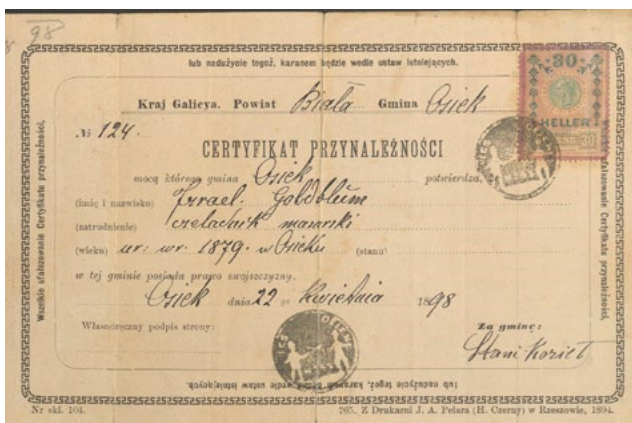 98
lub nadużycie tegoż, karanem będzie wedle ustaw istniejących.
30
HELLER
30
Kraj Galicya. Powiat Biała Gmina Osiek
№ 124.
CERTYFIKAT PRZYNALEŻNOŚCI
mocą którego gmina Osiek potwierdza,
(imię i nazwisko) Izrael Goldblum
(zatrudnienie) czeladnik masarski
(wieku) ur: wr. 1879. w Osieku (stanu)
w tej gminie posiada prawo swojszczyzny.
Osiek dnia 22 go Kwietnia 1898
Własnoręczny podpis strony:
Za gminę:
Wszelkie sfałszowanie Certyfikatu przynależności,
Wszelkie sfałszowanie Certyfikatu przynależności,
lub nadużycie tegoż, karanem będzie wedle ustaw istniejących.
Nr skł. 104.
765. Z Drukarni J. A. Pelara (H. Czerny) w Rzeszowie, 1894.